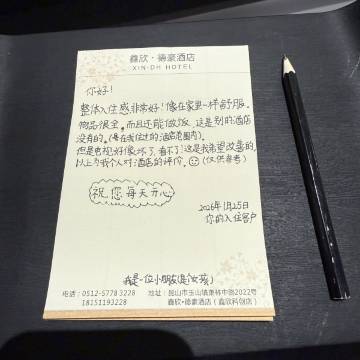 鑫欣·德豪酒店
XIN·DH HOTEL
你好！
整体入住感非常好！像在家里一样舒服。
物品很全。而且还能做饭，这是别的酒店
没有的。(是在我住过的酒店范围内)。
但是电视好像坏了，看不了！这是我希望改善的，
以上为我个人对酒店的评价。(仅供参考)
祝您每天开心
2026年1月25日
你的入住客户
我是一位小朋友(是女孩)
电话：0512-5778 3228
18151193228
地址：昆山市玉山镇萧林中路2022号
鑫欣·德豪酒店（鑫欣科创店）